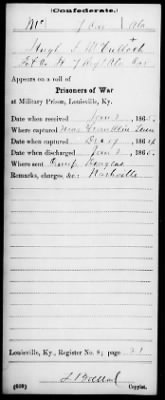 Confederate.
Mc 7 Cav Ala
Hugh J. McCulloch
Co. H 7 Reg't Ala Cav
Appears on a roll of
Prisoners of War
at Military Prison, Louisville, Ky.
Date when received Jan 2, 1865
Where captured Near Franklin Tenn
When captured Dec 17, 1864
Date when discharged Jan 2, 1865.
Where sent Camp Douglas
Remarks, charges, &c.: Nashville
Louisville, Ky., Register No. 8; page 21
(639)
Copyist.